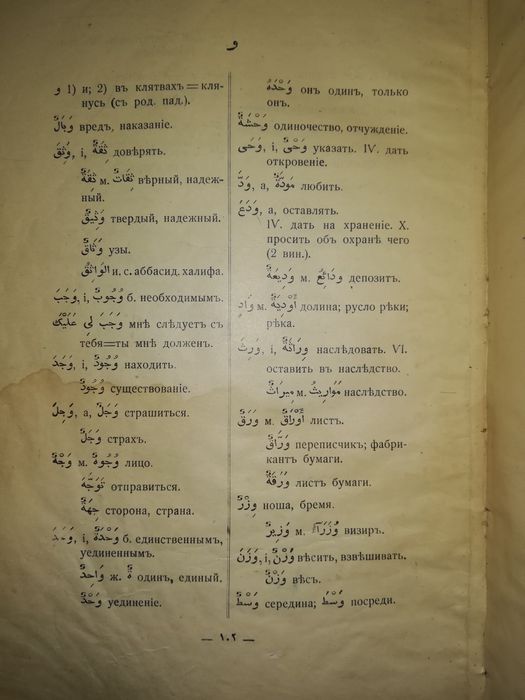 و
و 1) и; 2) въ клятвахъ=кля-
нусь (съ род. пад.).
وَبَالٌ вредъ, наказаніе.
وَثِقَ, i, ثِقَةٌ довѣрять.
ثِقَةٌ м. ثِقَاتٌ вѣрный, надеж-
ный.
وَثِيقٌ твердый, надежный.
وَثَاقٌ узы.
الوَاثِقُ и. с. аббасид. халифа.
وَجَبَ, i, وُجُوبٌ б. необходимымъ.
وَجَبَ لِي عَلَيْكَ мнѣ слѣдуетъ съ
тебя=ты мнѣ долженъ.
وَجَدَ, i, وُجُودٌ находить.
وُجُودٌ существованіе.
وَجِلَ, a, وَجَلٌ страшиться.
وَجَلٌ страхъ.
وَجْهٌ м. وُجُوهٌ лицо.
تَوَجَّهَ отправиться.
جِهَةٌ сторона, страна.
وَحَدَ, i, وَحْدَةٌ б. единственнымъ,
уединеннымъ.
وَاحِدٌ ж. ةٌ одинъ, единый.
وَحْدٌ уединеніе.
وَحْدَهُ онъ одинъ, только
онъ.
وَحْشَةٌ одиночество, отчужденіе.
وَحَى, i, وَحْىٌ указать. IV. дать
откровеніе.
وَدَّ, a, مَوَدَّةٌ любить.
وَدَعَ, a, оставлять.
IV. дать на храненіе. X.
просить объ охранѣ чего
(2 вин.).
وَدِيعَةٌ м. وَدَائِعُ депозитъ.
وَادٍ м. أَوْدِيَةٌ долина; русло рѣки;
рѣка.
وَرِثَ, i, وِرَاثَةٌ наслѣдовать. VI.
оставить въ наслѣдство.
مِيرَاثٌ м. مَوَارِيثُ наслѣдство.
وَرَقٌ м. أَوْرَاقٌ листъ.
وَرَّاقٌ переписчикъ; фабри-
кантъ бумаги.
وَرَقَةٌ листъ бумаги.
وِزْرٌ ноша, бремя.
وَزِيرٌ м. وُزَرَآءُ визирь.
وَزَنَ, i, وَزْنٌ вѣсить, взвѣшивать.
وَزْنٌ вѣсъ.
وَسَطٌ середина; وَسْطَ посреди.
— ١٠٢ —